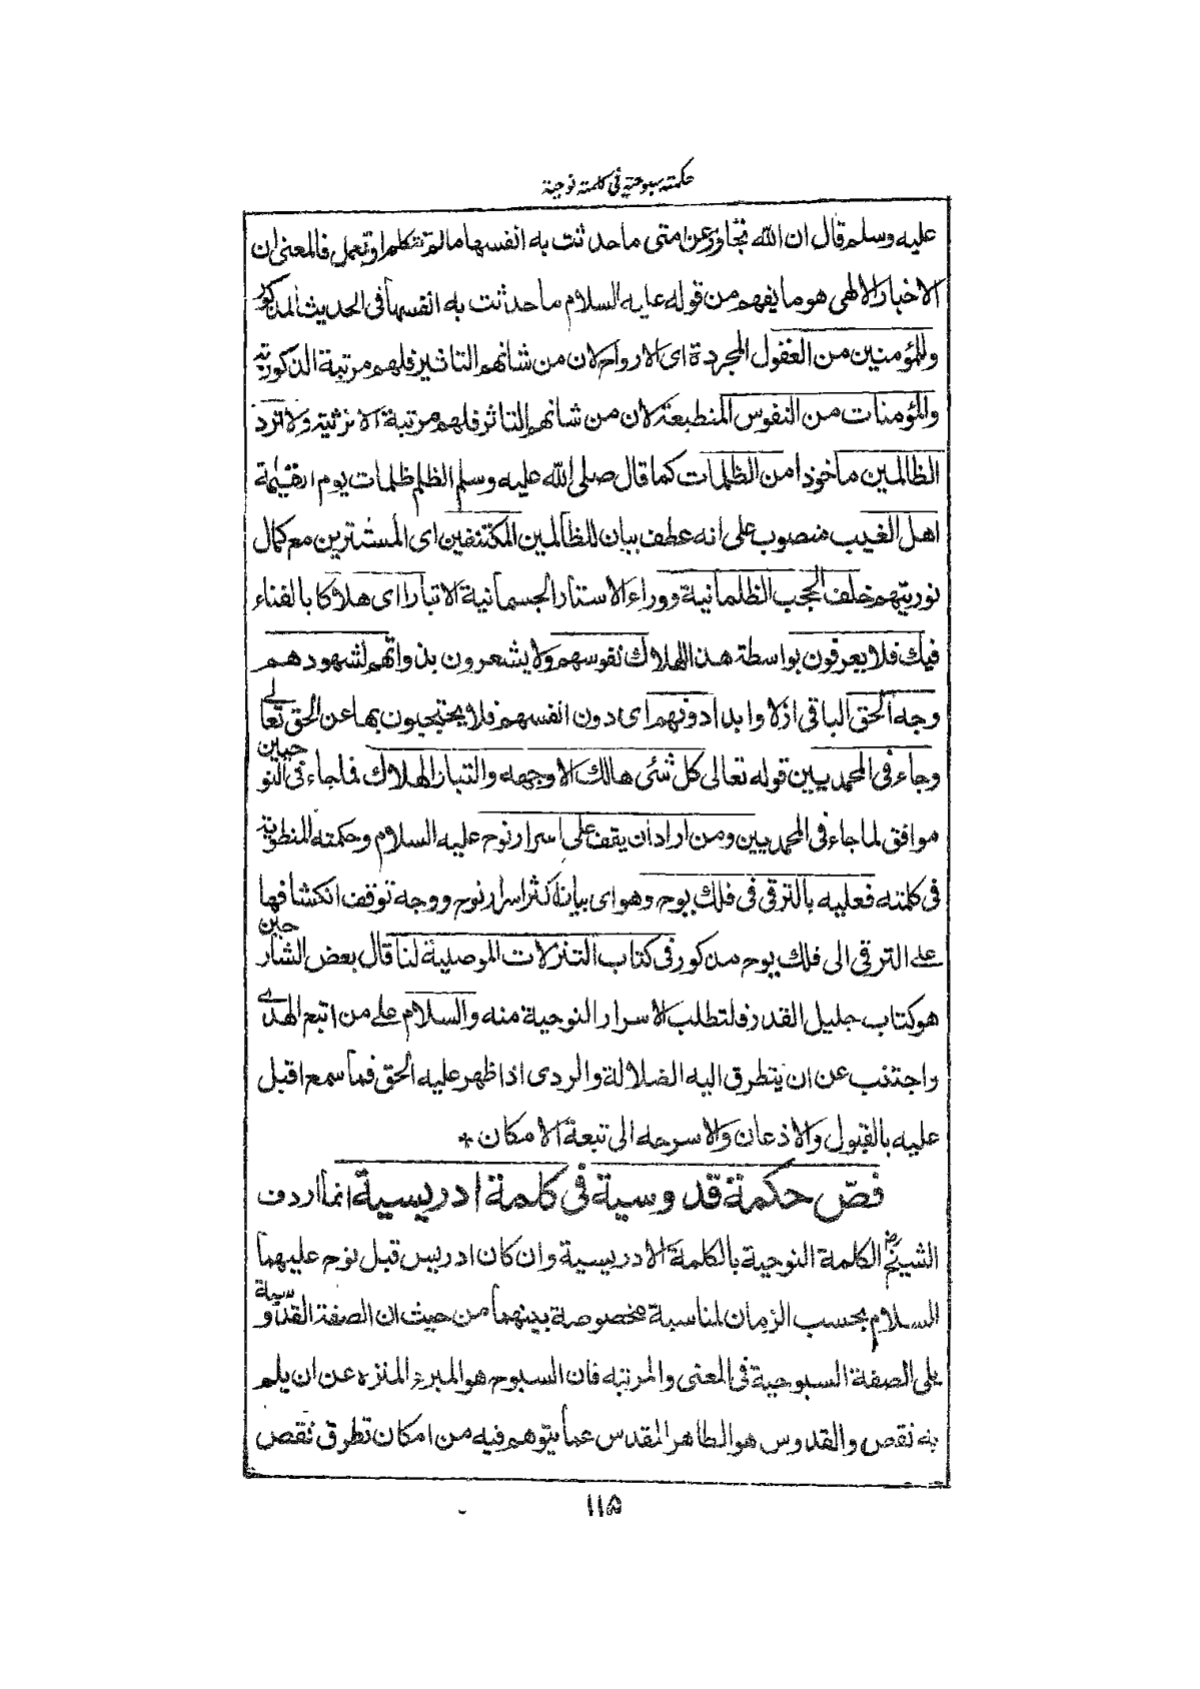 حكمته سبوحية في كلمته نوحية
عليه وسلم قال ان الله تجاوز عن امتى ما حدثت به انفسها ما لم تتكلم او تعمل فالمعنى ان
الاخبار الالهى هو ما يفهم من قوله عليه السلام ما حدثت به انفسها فى الحديث المذكور
وللمؤمنين من العقول المجردة اى الارواح لان من شانهم التاثير فلهم مرتبة الذكورية
والمؤمنات من النفوس المنطبعة لان من شانهم التاثر فلهم مرتبة الانوثية ولا تزد
الظالمين ماخوذا من الظلمات كما قال صلى الله عليه وسلم الظلم ظلمات يوم القيمة
اهل الغيب منصوب على انه عطف بيان للظالمين المكتنفين اى المستترين مع كمال
نوريتهم خلف الحجب الظلمانية ووراء الاستار الجسمانية الا تبارا اى هلاكا بالفناء
فيك فلا يعرفون بواسطة هذا الهلاك نفوسهم ولا يشعرون بذواتهم لشهودهم
وجه الحق الباقى ازلا وابدا دونهم اى دون انفسهم فلا يحتجبون بها عن الحق تعالى
وجاء فى المحمديين قوله تعالى كل شئى هالك الا وجهه والتبار الهلاك فما جاء فى النوحيين
موافق لما جاء فى المحمديين ومن اراد ان يقف على اسرار نوح عليه السلام وحكمته المنطوية
فى كلمته فعليه بالترقى فى فلك يوح وهو اى بيان اكثر اسرار نوح ووجه توقف انكشافها
على الترقى الى فلك يوح مذكور فى كتاب التنزلات الموصلية لنا قال بعض الشارحين
هو كتاب جليل القدر فلتطلب الاسرار النوحية منه والسلام على من اتبع الهدى
واجتنب عن ان يتطرق اليه الضلالة والردى اذا ظهر عليه الحق فما سمع اقبل
عليه بالقبول والاذعان والا سرحه الى تبعة الامكان *
فصّ حكمة قدوسية فى كلمة ادريسية انما اردف
الشيخ رض الكلمة النوحية بالكلمة الادريسية وان كان ادريس قبل نوح عليهما
السلام بحسب الزمان لمناسبة مخصوصة بينهما من حيث ان الصفة القدوسية
يلى الصفة السبوحية فى المعنى والمرتبه فان السبوح هو المبرء المنزه عن ان يلم
به نقص والقدوس هو الطاهر المقدس عما يتوهم فيه من امكان تطرق نقص
١١٥